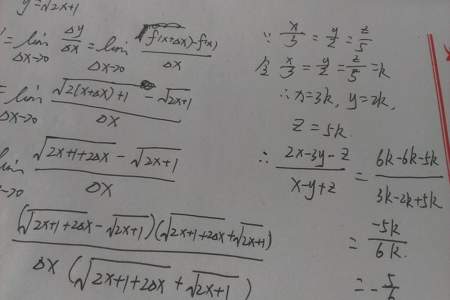 y=√2x+1
' = lim Δx→0 Δy/Δx = lim Δx→0 f(x+Δx)-f(x)/Δx
= lim Δx→0 √2(x+Δx)+1 - √2x+1 / Δx
lim →0 √2x+1+2Δx - √2x+1 / Δx
(√2x+1+2Δx - √2x+1)(√2x+1+2Δx + √2x+1) / Δx(√2x+1+2Δx + √2x+1)
∵ x/3 = y/2 = z/5
令 x/3 = y/2 = z/5 = k
∴ x=3k, y=2k,
z=5k.
∴ 2x-3y-z / x-y+z = 6k-6k-5k / 3k-2k+5k
= -5k / 6k
= -5/6